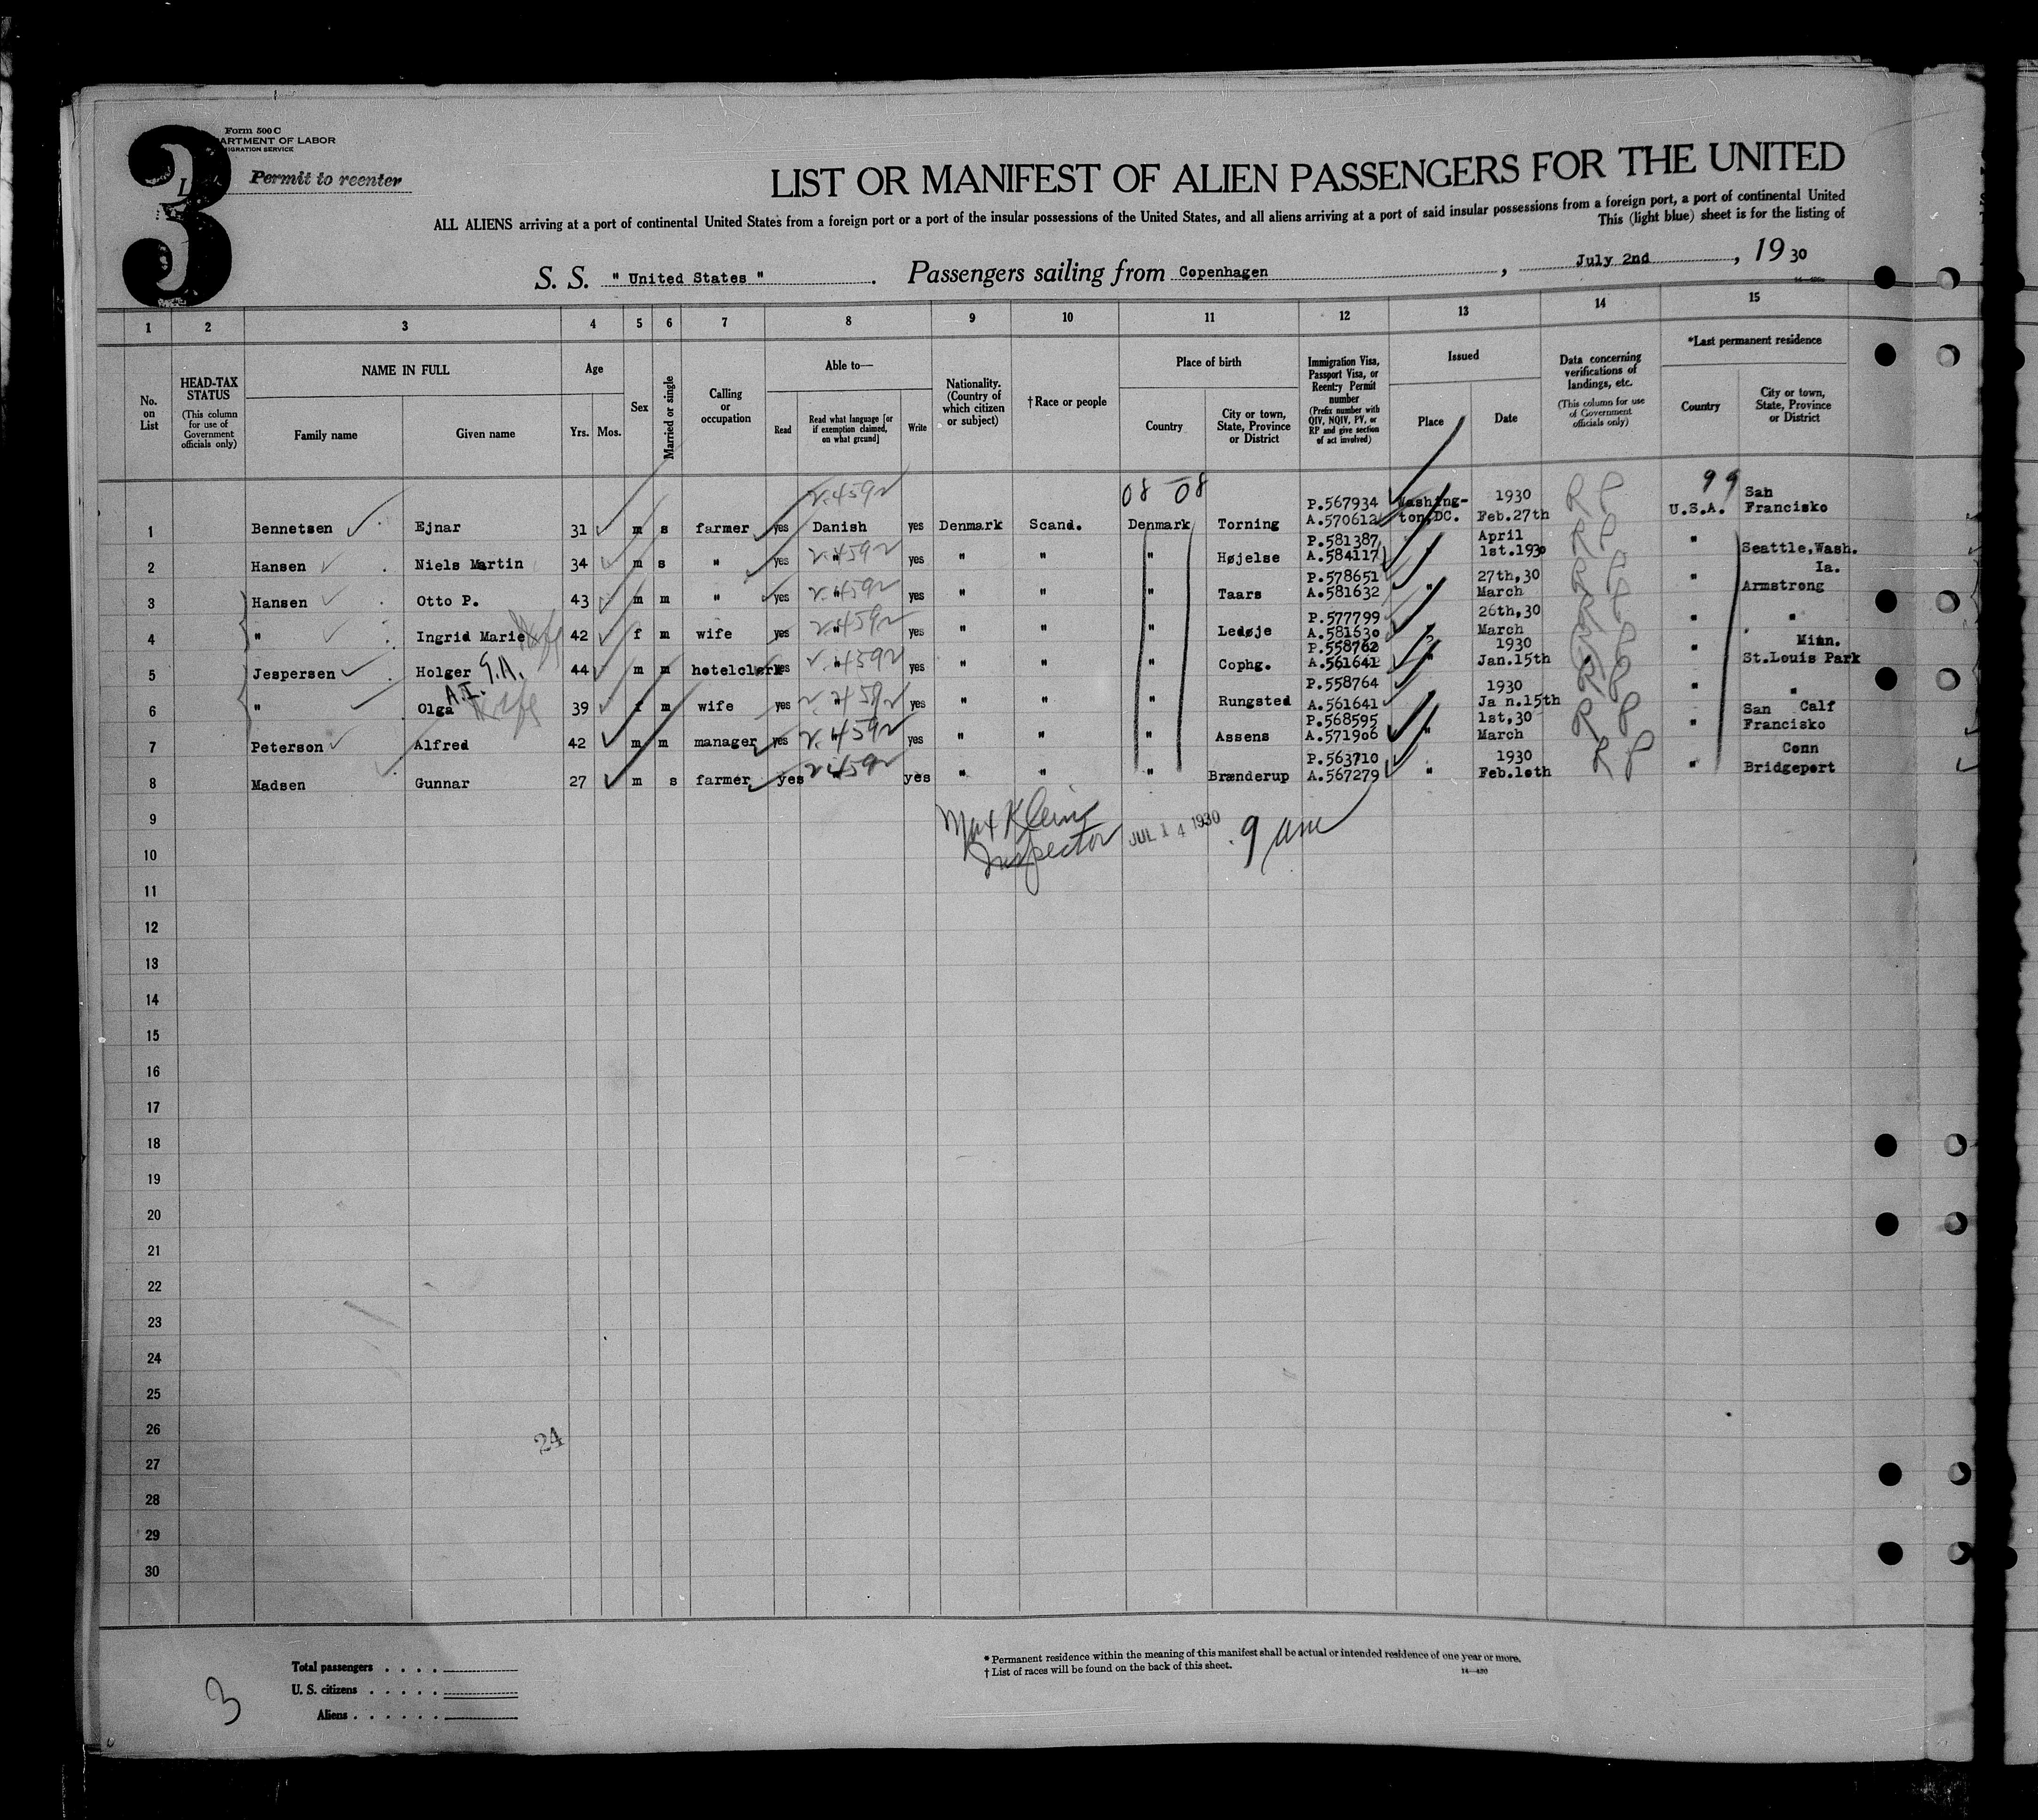 3
Form 500 C
ARTMENT OF LABOR
IGRATION SERVICE
Permit to reenter
LIST OR MANIFEST OF ALIEN PASSENGERS FOR THE UNITED
ALL ALIENS arriving at a port of continental United States from a foreign port or a port of the insular possessions of the United States, and all aliens arriving at a port of said insular possessions from a foreign port, a port of continental United
This (light blue) sheet is for the listing of
S. S. " United States ". Passengers sailing from Copenhagen, July 2nd, 19 30
1 2 3 4 5 6 7 8 9 10 11 12 13 14 15
No. on List
HEAD-TAX STATUS
(This column for use of Government officials only)
NAME IN FULL
Family name Given name
Age
Yrs. Mos.
Sex
Married or single
Calling or occupation
Able to—
Read
Read what language [or if exemption claimed, on what ground]
Write
Nationality. (Country of which citizen or subject)
†Race or people
Place of birth
Country
City or town, State, Province or District
Immigration Visa, Passport Visa, or Reentry Permit number
(Prefix number with QIV, NQIV, PV, or RP and give section of act involved)
Issued
Place Date
Data concerning verifications of landings, etc.
(This column for use of Government officials only)
*Last permanent residence
Country
City or town, State, Province or District
08 08 99
1 Bennetsen Ejnar 31 m s farmer yes Danish yes Denmark Scand. Denmark Torning P.567934 A.570612 Washington,DC. 1930 Feb.27th RP U.S.A. San Francisko
2 Hansen Niels Martin 34 m s " yes " yes " " " Højelse P.581387 A.584117 " April 1st.1930 RP " Seattle,Wash.
3 Hansen Otto P. 43 m m " yes " yes " " " Taars P.578651 A.581632 " 27th,30 March RP " Ia. Armstrong
4 " Ingrid Marie 42 f m wife yes " yes " " " Ledøje P.577799 A.581630 " 26th,30 March RP " "
5 Jespersen Holger G.A. 44 m m hotelclerk yes " yes " " " Cophg. P.558762 A.561641 " 1930 Jan.15th RP " Minn. St.Louis Park
6 " Olga A.I. 39 f m wife yes " yes " " " Rungsted P.558764 A.561641 " 1930 Ja n.15th RP " "
7 Peterson Alfred 42 m m manager yes " yes " " " Assens P.568595 A.571906 " 1st,30 March RP " San Calf Francisko
8 Madsen Gunnar 27 m s farmer yes " yes " " " Brænderup P.563710 A.567279 " 1930 Feb.10th RP " Conn Bridgeport
9
Max Klein
Inspector JUL 14 1930 9 am
10
11
12
13
14
15
16
17
18
19
20
21
22
23
24
25
26
24
27
28
29
30
Total passengers . . . .
U. S. citizens . . . . .
Aliens . . . . . .
3
* Permanent residence within the meaning of this manifest shall be actual or intended residence of one year or more.
† List of races will be found on the back of this sheet.
14—430